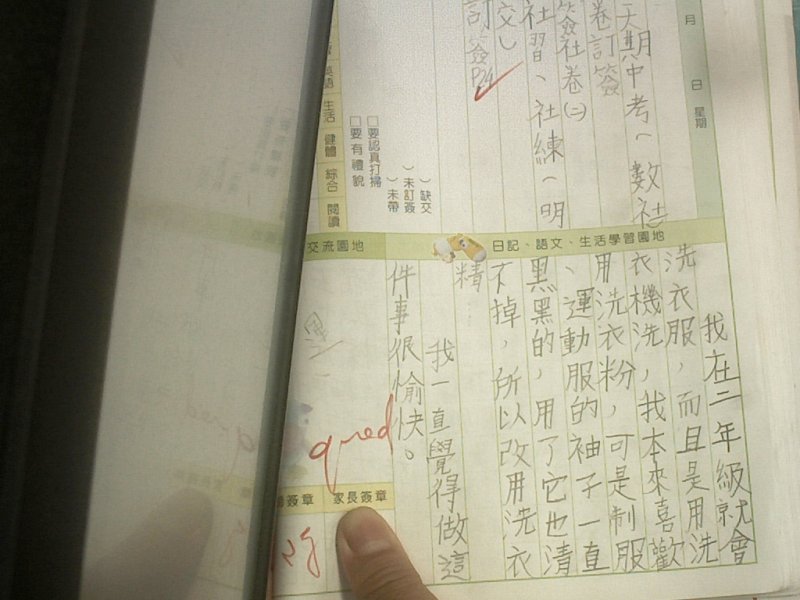 月 日 星期
天期中考(數社
卷訂簽
簽社卷(二)
社習、社練(明
交)
訂簽P24
)缺交
)未訂簽
)未帶
□要認真打掃
□要有禮貌
英語 生活 健體 綜合 閱讀
日記、語文、生活學習園地
我在二年級就會
洗衣服,而且是用洗
衣機洗,我本來喜歡
用洗衣粉,可是制服
、運動服的袖子一直
黑黑的,用了它也清
不掉,所以改用洗衣
精
我一直覺得做這
件事很愉快。
交流園地
good
家長簽章
簽章